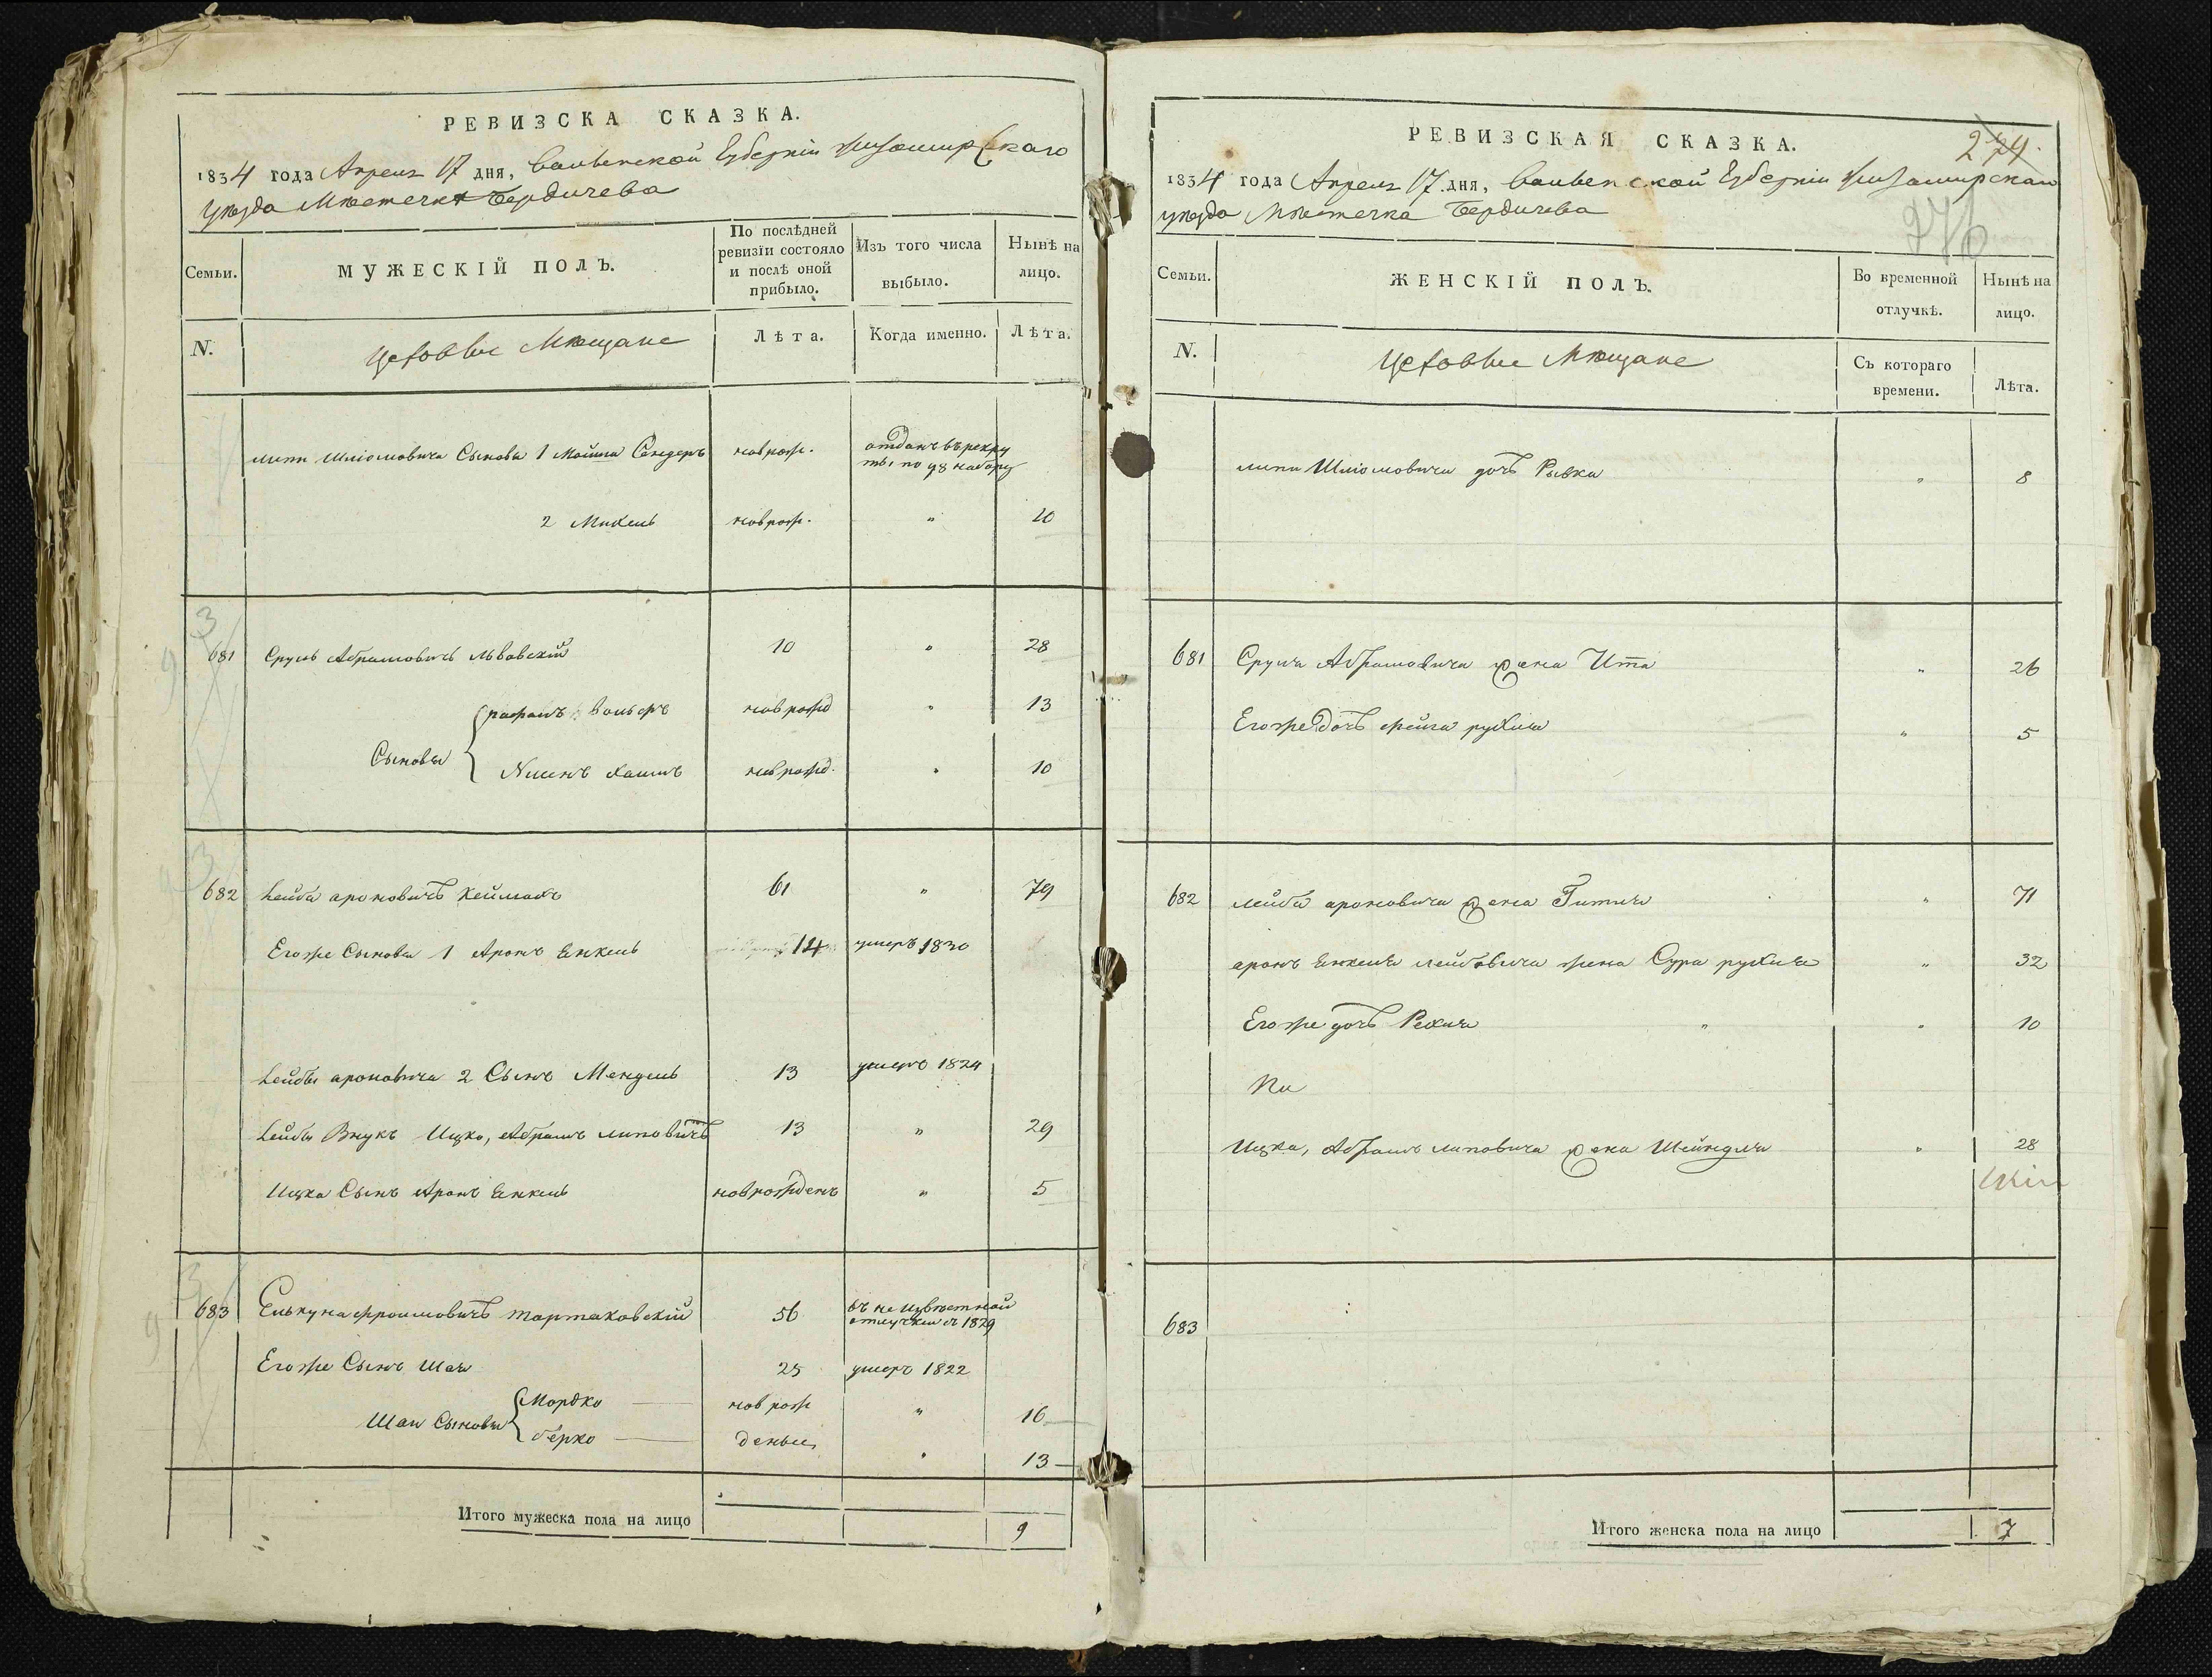 РЕВИЗСКА СКАЗКА.
1834 года Апреля 17 дня, Волынской Губерніи Житомирскаго
уѣзда Мѣстечка Бердичева
Семьи.
МУЖЕСКІЙ ПОЛЪ.
По послѣдней ревизіи состояло и послѣ оной прибыло.
Изъ того числа выбыло.
Нынѣ на лицо.
N.
Цеховые Мѣщане
Лѣта.
Когда именно.
Лѣта.
Липи Шліомовича Сыновья 1 Мойша Сендеръ новрож. отданъ въ рекру
ты по 98 набору
2 Михель новрож. " 10
681 Сруль Абрамовичъ Львовскій 10 " 28
Сыновья
рафаилъ Вольфъ новрожд " 13
Нисенъ Хаимъ новрожд. " 10
682 Лейба ароновичъ Хеймахъ 61 " 79
Егоже Сыновья 1 Аронъ Енкель 14 умеръ 1830
Лейбы ароновича 2 Сынъ Мендель 13 умеръ 1824
Лейбы Внукъ Ицко, Абрамъ Липовичъ 13 " 29
Ицка Сынъ Аронъ Енкель новрожденъ " 5
683 Елькуна фроимовичъ тартаковскій 56 въ неизвѣстной
отлучки съ 1829
Егоже Сынъ Шая 25 умеръ 1822
Шаи Сыновья
Мордко новрож " 16
берко деные " 13
Итого мужеска пола на лицо 9
РЕВИЗСКАЯ СКАЗКА.
274.
1834 года Апреля 17 дня, Волынской Губерніи Житомирскаго
276
уѣзда Мѣстечка Бердичева
Семьи.
ЖЕНСКІЙ ПОЛЪ.
Во временной отлучкѣ.
Нынѣ на лицо.
N.
Цеховые Мѣщане
Съ котораго времени.
Лѣта.
Липи Шліомовича дочь Рывка " 8
681 Сруля Абрамовича жена Ита " 26
Егоже дочь фейга рухля " 5
682 Лейбы ароновича жена Гитля " 71
аронъ Енкеля лейбовича жена Сура рухля " 32
Егоже дочь Рехля " 10
Ицка, Абрамъ липовича жена Шейндля " 28
683
Итого женска пола на лицо 7